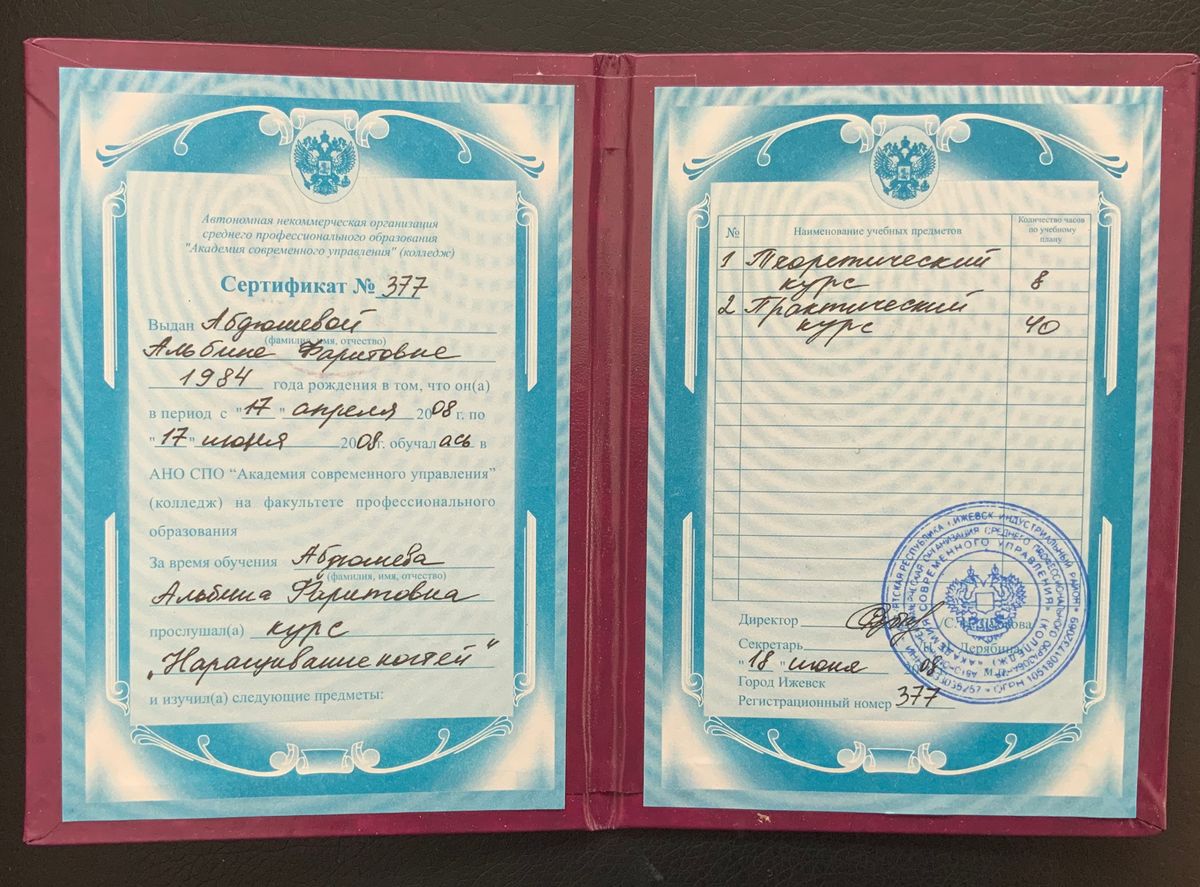 Автономная некоммерческая организация
среднего профессионального образования
"Академия современного управления" (колледж)
Сертификат № 377
Выдан Абдюшевой
(фамилия, имя, отчество)
Альбине Фаритовне
1984 года рождения в том, что он(а)
в период с "17" апреля 2008 г. по
"17" июня 2008 г. обучалась в
АНО СПО “Академия современного управления”
(колледж) на факультете профессионального
образования
За время обучения Абдюшева
(фамилия, имя, отчество)
Альбина Фаритовна
прослушал(а) курс
„Наращивание ногтей“
и изучил(а) следующие предметы:
№ Наименование учебных предметов Количество часов
по учебному
плану
1 Теоретический
курс 8
2 Практический
курс 40
Директор
Секретарь Дерябина
"18" июня 08 М.П.
Город Ижевск
Регистрационный номер 377
ИЖЕВСК ИНДУСТРИАЛЬНЫЙ РАЙОН
СОВРЕМЕННОГО УПРАВЛЕНИЯ
ОГРН 1051801732069